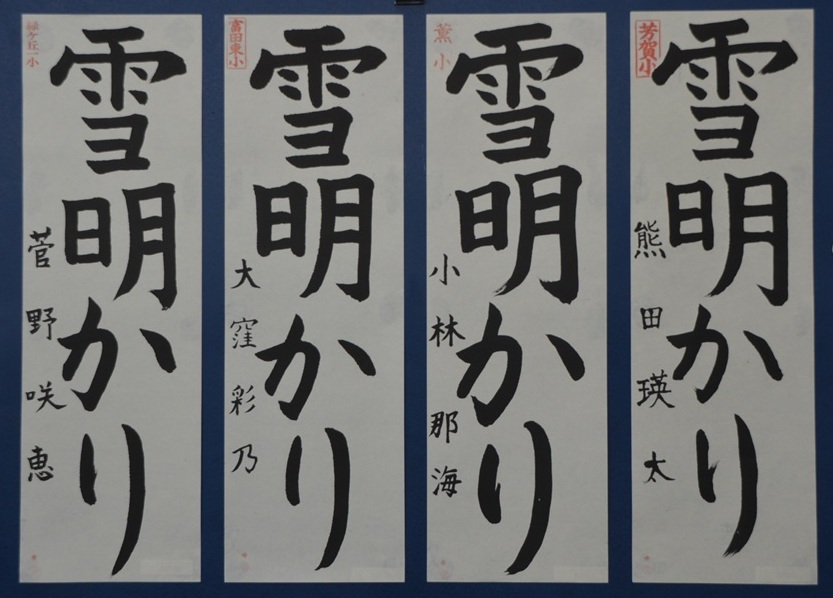 芳賀小
雪明かり
熊田瑛太
薫小
雪明かり
小林那海
富田東小
雪明かり
大窪彩乃
緑ケ丘一小
雪明かり
菅野咲恵